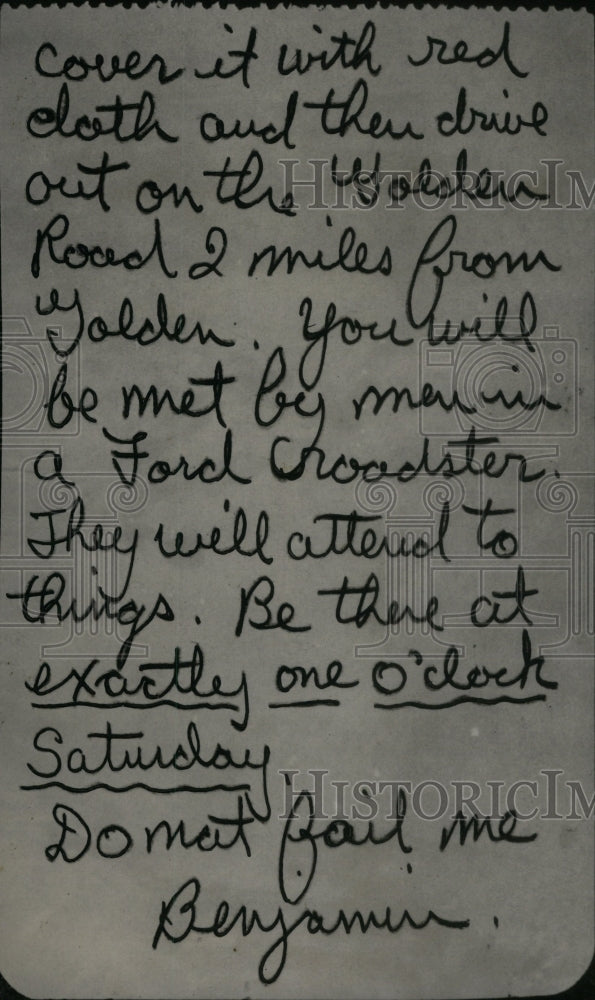 cover it with red
cloth and then drive
out on the Golden
Road 2 miles from
Golden. You will
be met by men in
a Ford Roadster.
They will attend to
things. Be there at
exactly one o'clock
Saturday.
Do not fail me
Benjamin.
HISTORICIM
HISTORICIM